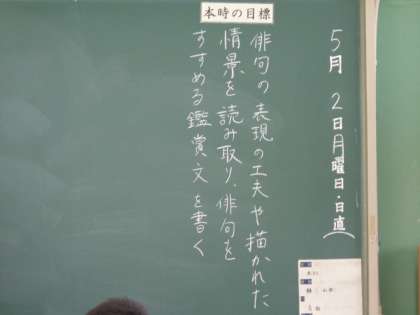 本時の目標
5月 2日月曜日・日直
俳句の表現の工夫や描かれた
情景を読み取り、俳句を
すすめる鑑賞文を書く